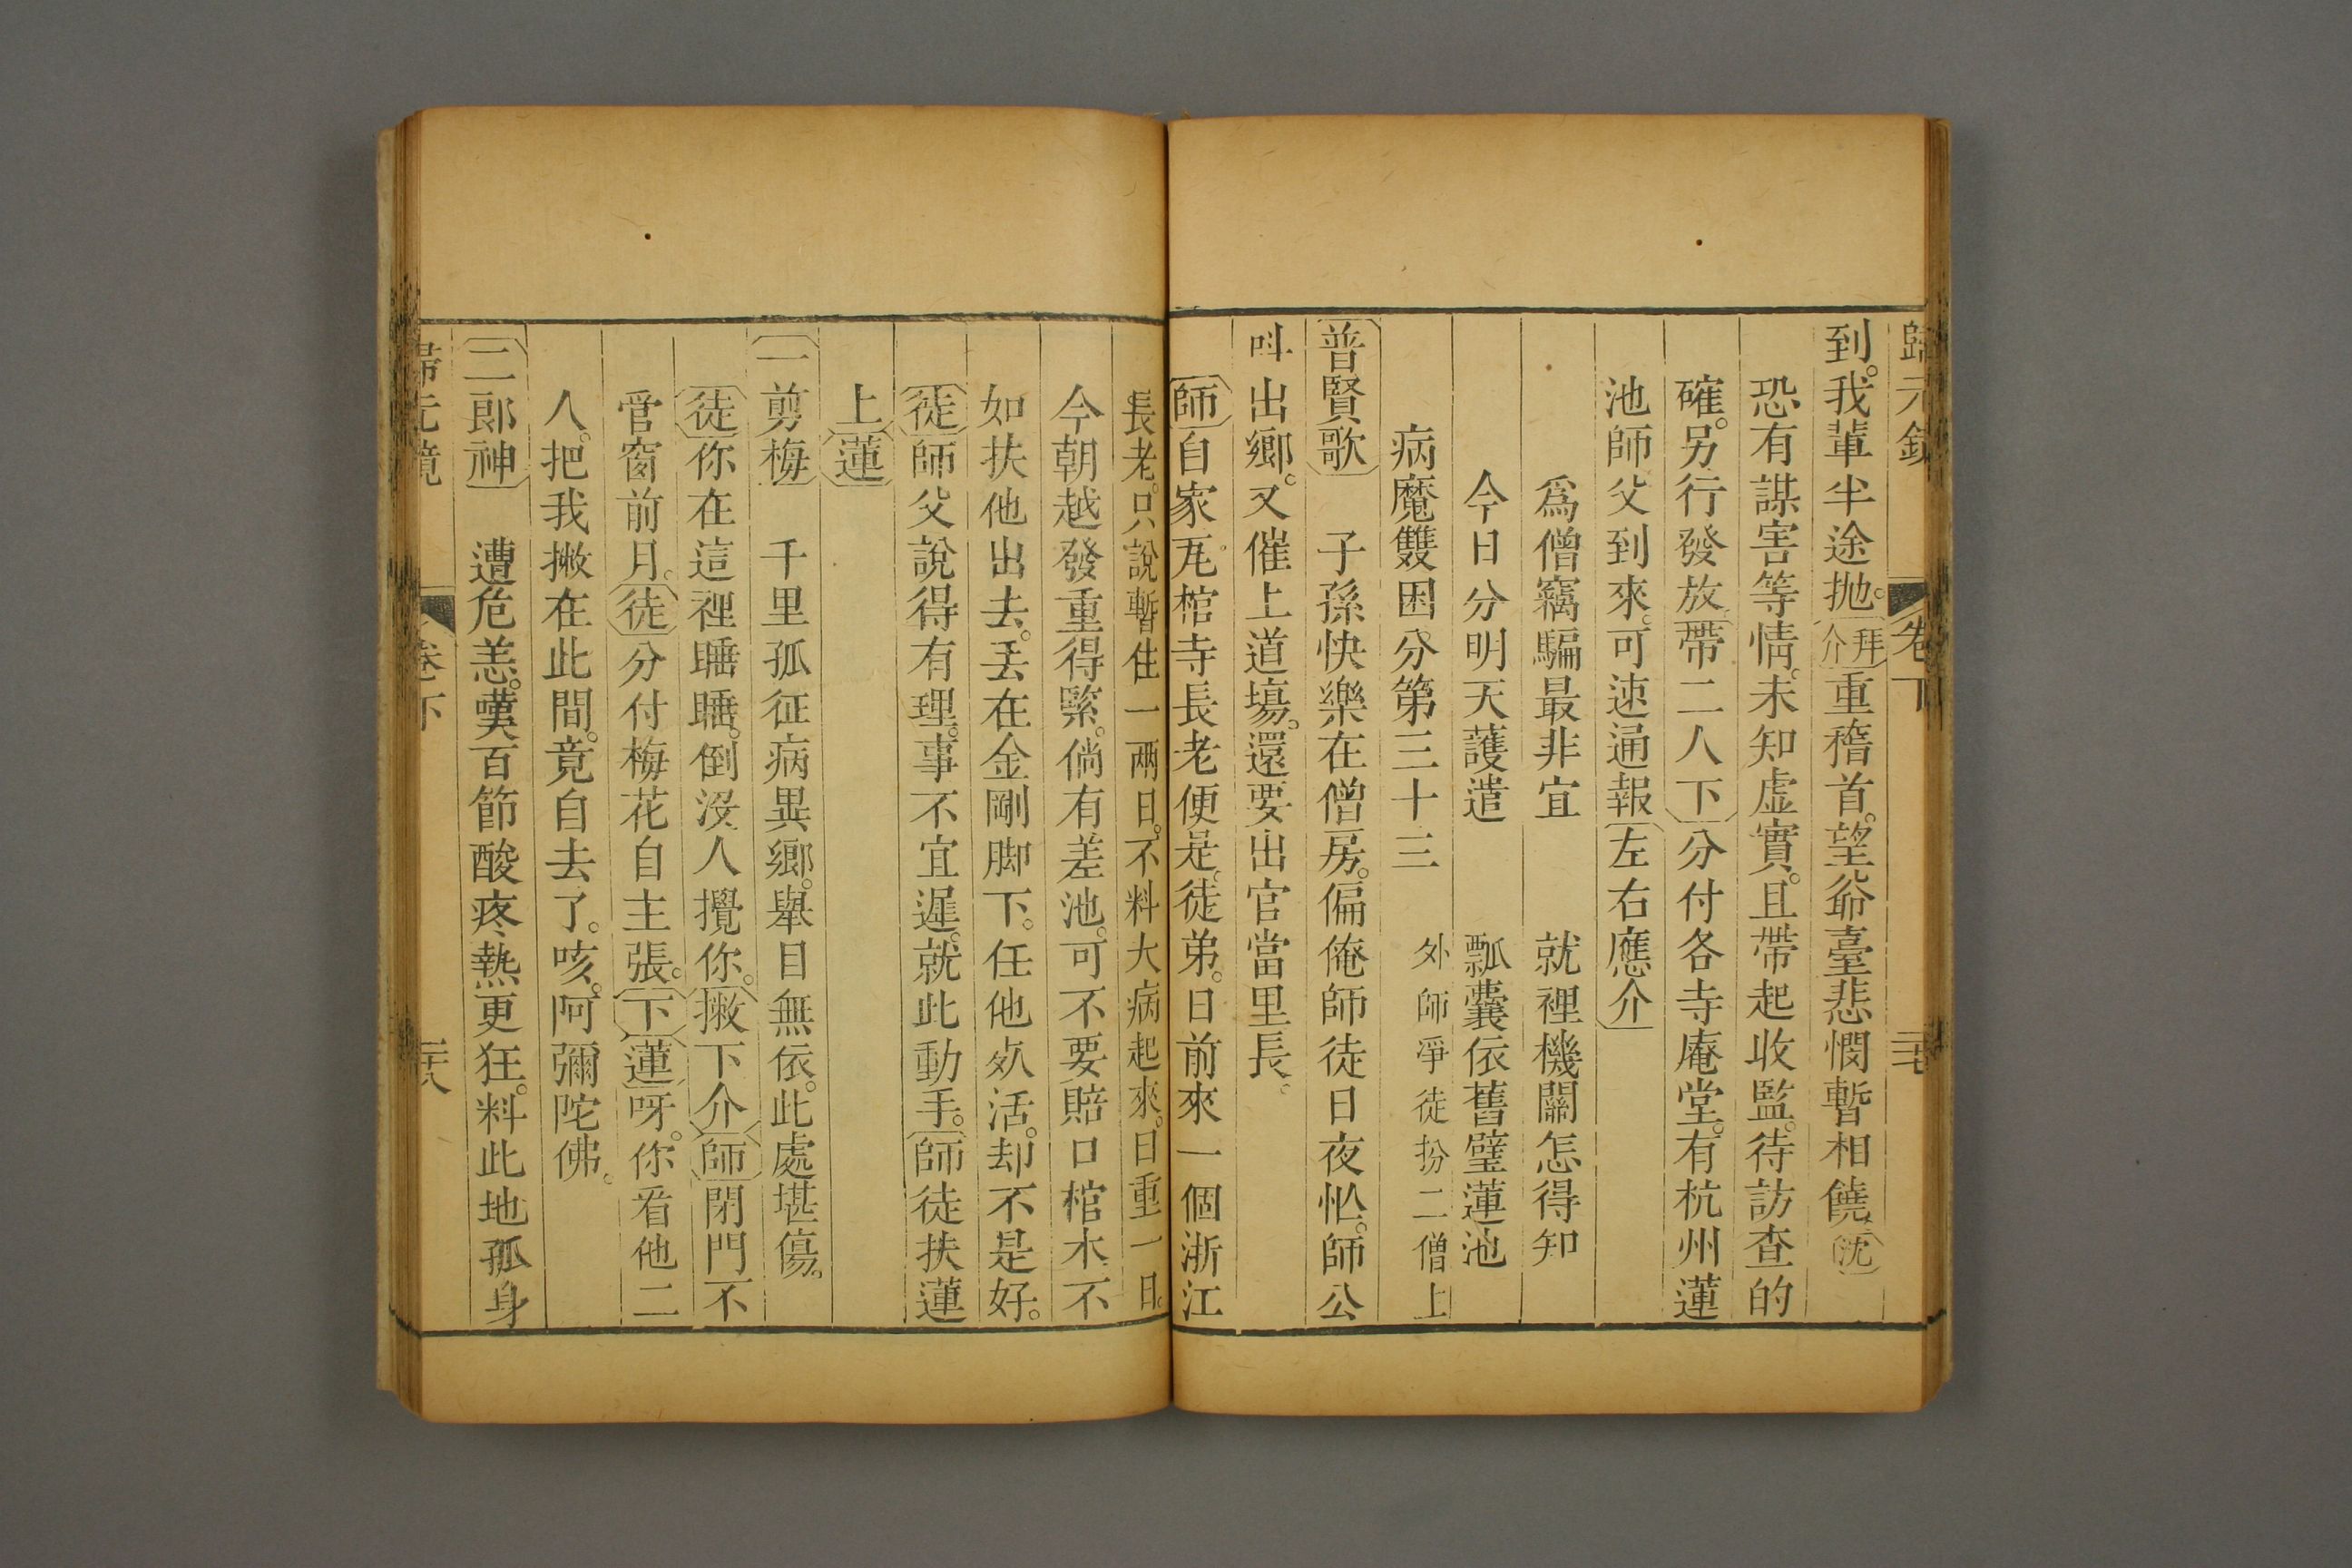 歸元鏡 卷下 三七
到。我輩半途拋。拜介重稽首。望爺臺悲憫暫相饒沈
恐有謀害等情。未知虛實。且帶起收監。待訪查的
確。另行發放帶二人下分付各寺庵堂。有杭州蓮
池師父到來。可速通報左右應介
爲僧竊騙最非宜 就裡機關怎得知
今日分明天護遣 瓢囊依舊璧蓮池
病魔雙困分第三十三 外師淨徒扮二僧上
普賢歌 子孫快樂在僧房。偏俺師徒日夜忙。師公
呌出鄉。又催上道場。還要出官當里長。
師自家瓦棺寺長老便是。徒弟。日前來一個浙江
長老。只說暫住一兩日。不料大病起來。日重一日。
今朝越發重得緊。倘有差池。可不要賠口棺木。不
如扶他出去。丟在金剛脚下。任他死活。却不是好。
徒師父說得有理。事不宜遲。就此動手。師徒扶蓮
上蓮
一剪梅 千里孤征病異鄉。舉目無依。此處堪傷。
徒你在這裡睡睡。倒沒人攪你。撇下介師閉門不
管窗前月。徒分付梅花自主張。下蓮呀。你看他二
人。把我撇在此間。竟自去了。咳。阿彌陀佛。
二郎神 遭危恙。嘆百節酸疼熱更狂。料此地孤身
歸元鏡 卷下 三八